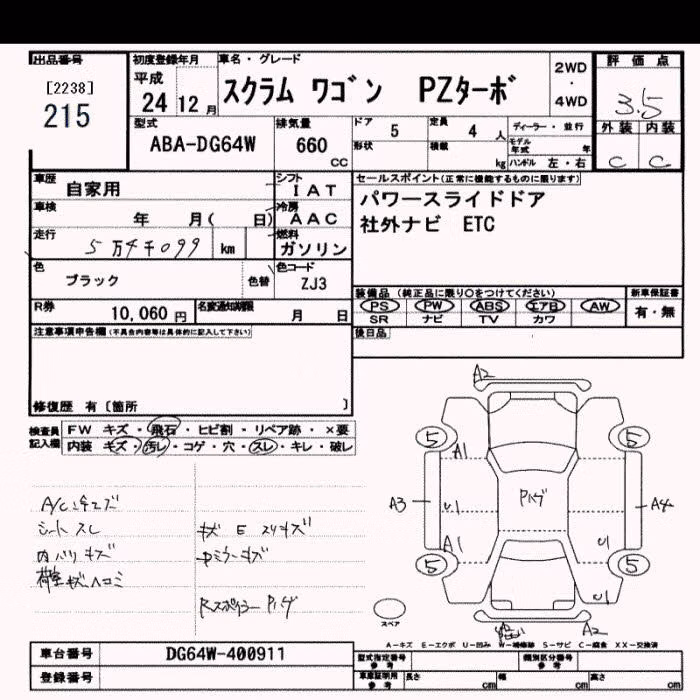 出品番号
[2238]
215
初度登録年月
平成
24 12 月
車名・グレード
スクラム ワゴン PZターボ
2WD
・
4WD
評価点
3.5
外装 内装
C C
型式
ABA-DG64W
排気量
660
CC
ドア 5
定員 4 人
形状
積載 kg
ディーラー・並行
モデル年式 年
ハンドル 左・右
車歴 自家用
シフト
IAT
車検 年 月( 日)
冷房
AAC
走行 5万4千099 km
燃料
ガソリン
色 ブラック 色替
色コード
ZJ3
R券 10,060 円
名変通知期限 月 日
セールスポイント(正常に機能するものに限ります)
パワースライドドア
社外ナビ ETC
装備品(純正品に限り〇をつけてください)
PS PW ABS エアB AW
SR ナビ TV カワ
新車保証書
有・無
後日品
注意事項申告欄(不具合内容等は具体的に記入して下さい)
修復歴 有 [箇所 ]
検査員記入欄
FW キズ・飛石・ヒビ割・リペア跡・×要
内装 キズ・汚レ・コゲ・穴・スレ・キレ・破レ
シートスレ
内バリキズ
荷室キズヘコミ
RスポイラーPハゲ
A2
5 5
A1
A3 U1 Pハゲ A4
A1 U1
5 5
U1
A2
スペア
A-キズ E-エクボ U-凹み W-補修跡 S-サビ C-腐食 XX-交換済
車台番号 DG64W-400911
登録番号
型式指定番号 参考
類別区分番号 参考
車庫証明用 参考
長さ cm 幅 cm 高さ cm